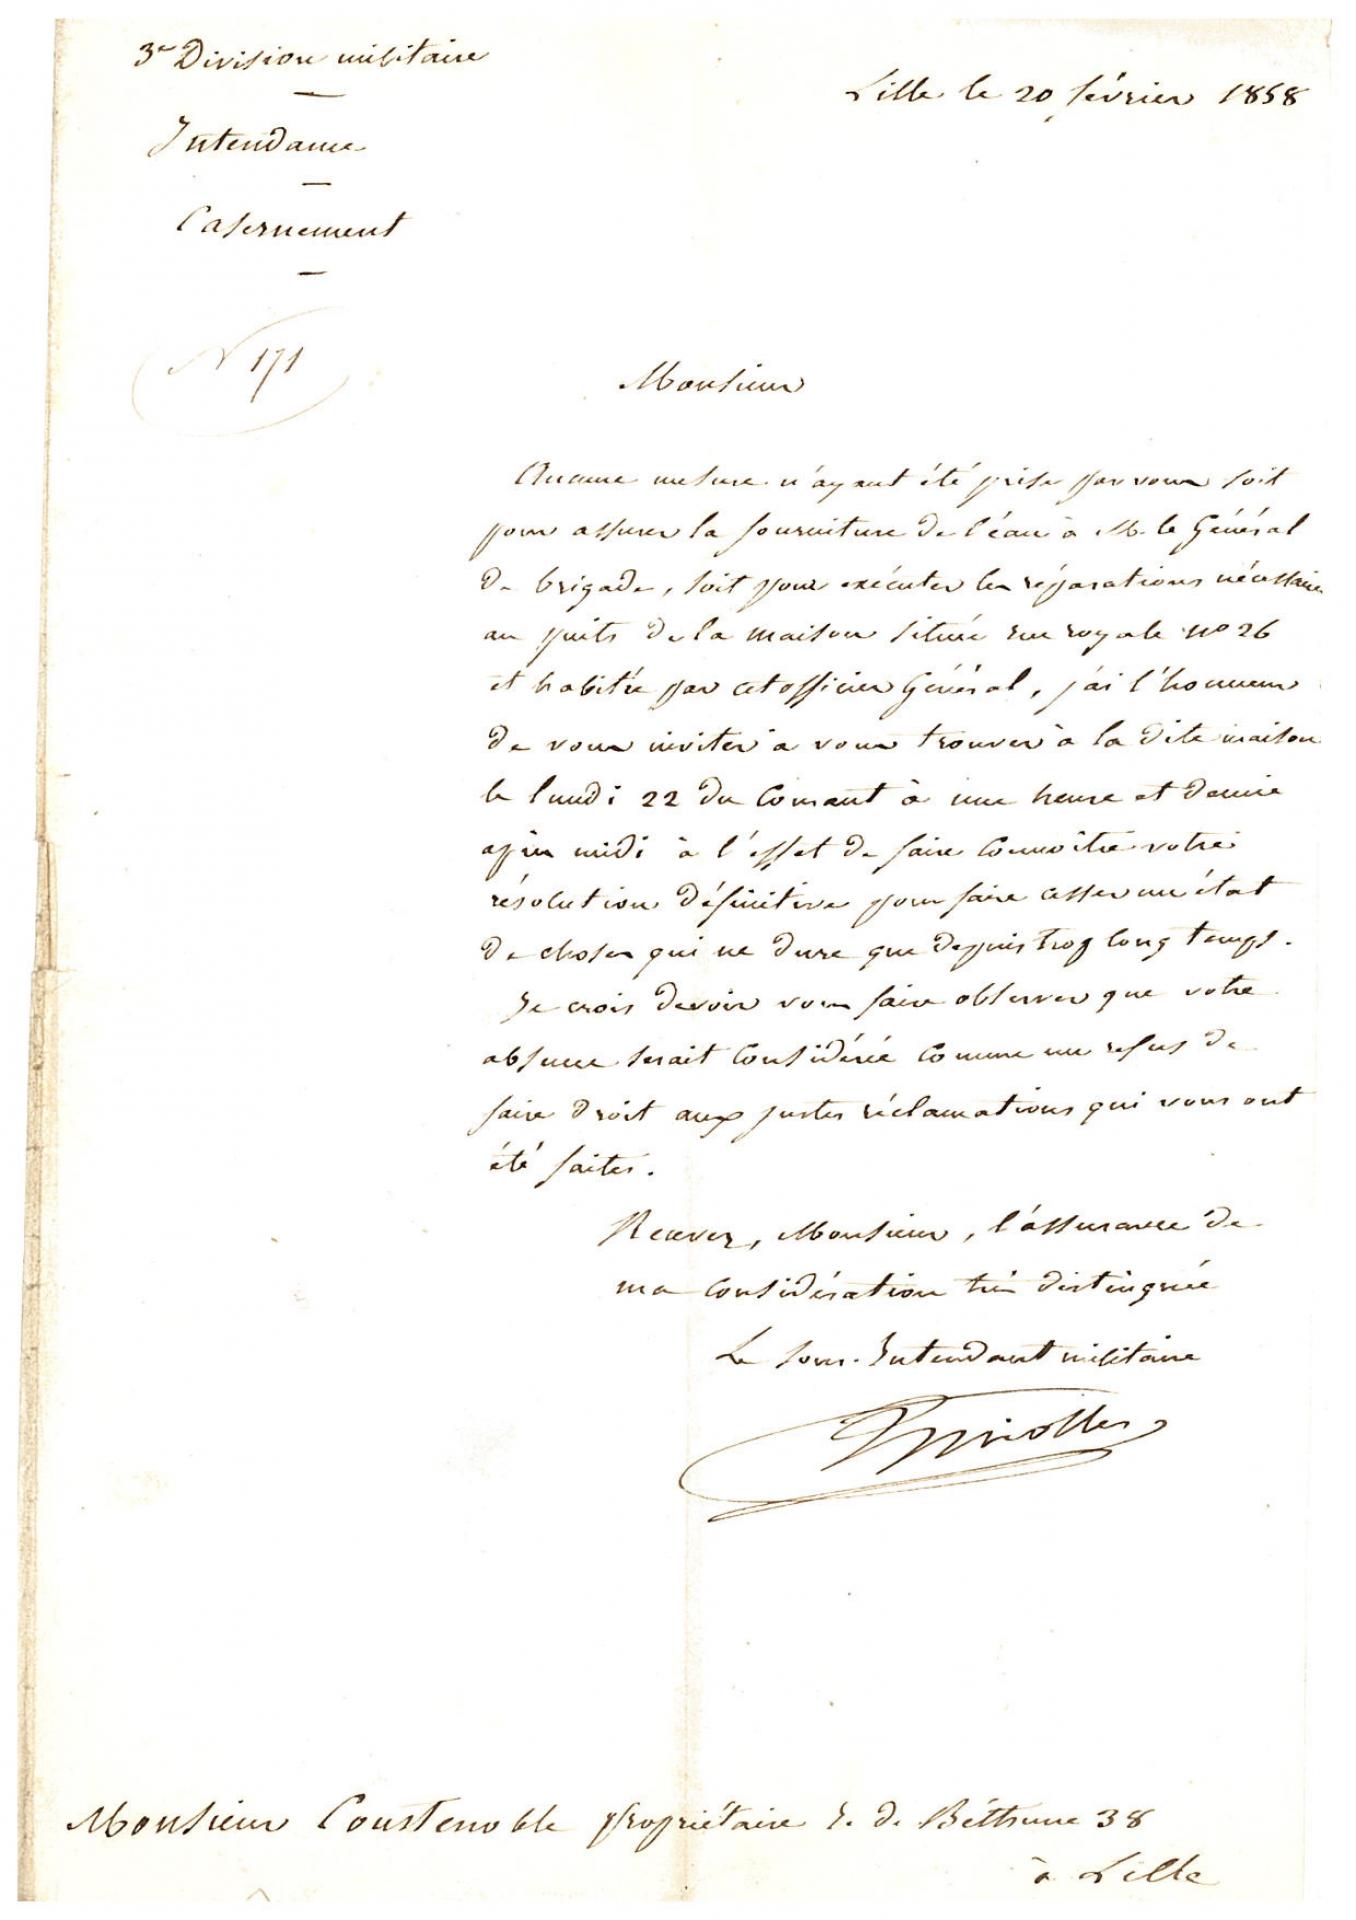 3e Division militaire
Lille le 20 février 1858
Intendance
Casernement
N 171
Monsieur
Aucune mesure n'ayant été prise par vous soit
pour assurer la fourniture de l'eau à M. le Général
de brigade, soit pour exécuter les réparations nécessaires
au puits de la maison située rue royale no 26
et habitée par cet officier Général, j'ai l'honneur
de vous inviter à vous trouver à la dite maison
le lundi 22 du Courant à une heure et demie
après midi à l'effet de faire Connoître votre
résolution définitive pour faire cesser un état
de choses qui ne dure que depuis trop long temps.
Je crois devoir vous faire observer que votre
absence serait Considérée Comme un refus de
faire droit aux justes réclamations qui vous ont
été faites.
Recevez, Monsieur, l'assurance de
ma Considération très distinguée
Le Sous-Intendant militaire
Monsieur Coustenoble propriétaire r. de Béthune 38
à Lille